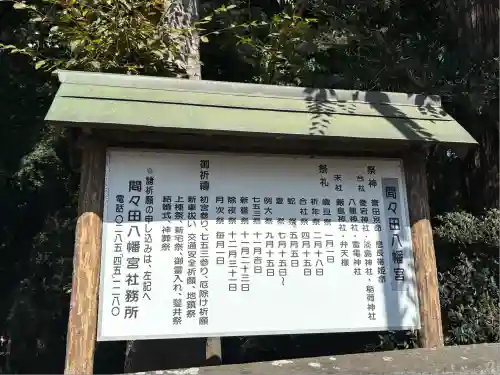 間々田八幡宮
祭神 誉田別命・息長帯姫命
合社 愛宕神社・淡島神社・稲荷神社
八龍神社・雷電神社
末社 厳島神社・弁天様
祭礼 歳旦祭 一月一日
祈年祭 二月十八日
合社祭 四月十五日
蛇祭 五月五日
例大祭 九月十五日
七五三祭 十一月吉日
新嘗祭 十一月二十三日
除夜祭 十二月三十一日
月次祭 毎月一日
御祈禱 初宮参り、七五三参り、厄除け祈願
新車祓い、交通安全祈願、地鎮祭
上棟祭、新宅祭、御霊入れ、竣井祭
結婚式、神葬祭
◎諸祈願の申し込みは、左記へ
間々田八幡宮社務所
電話〇二八五(四五)一二八〇